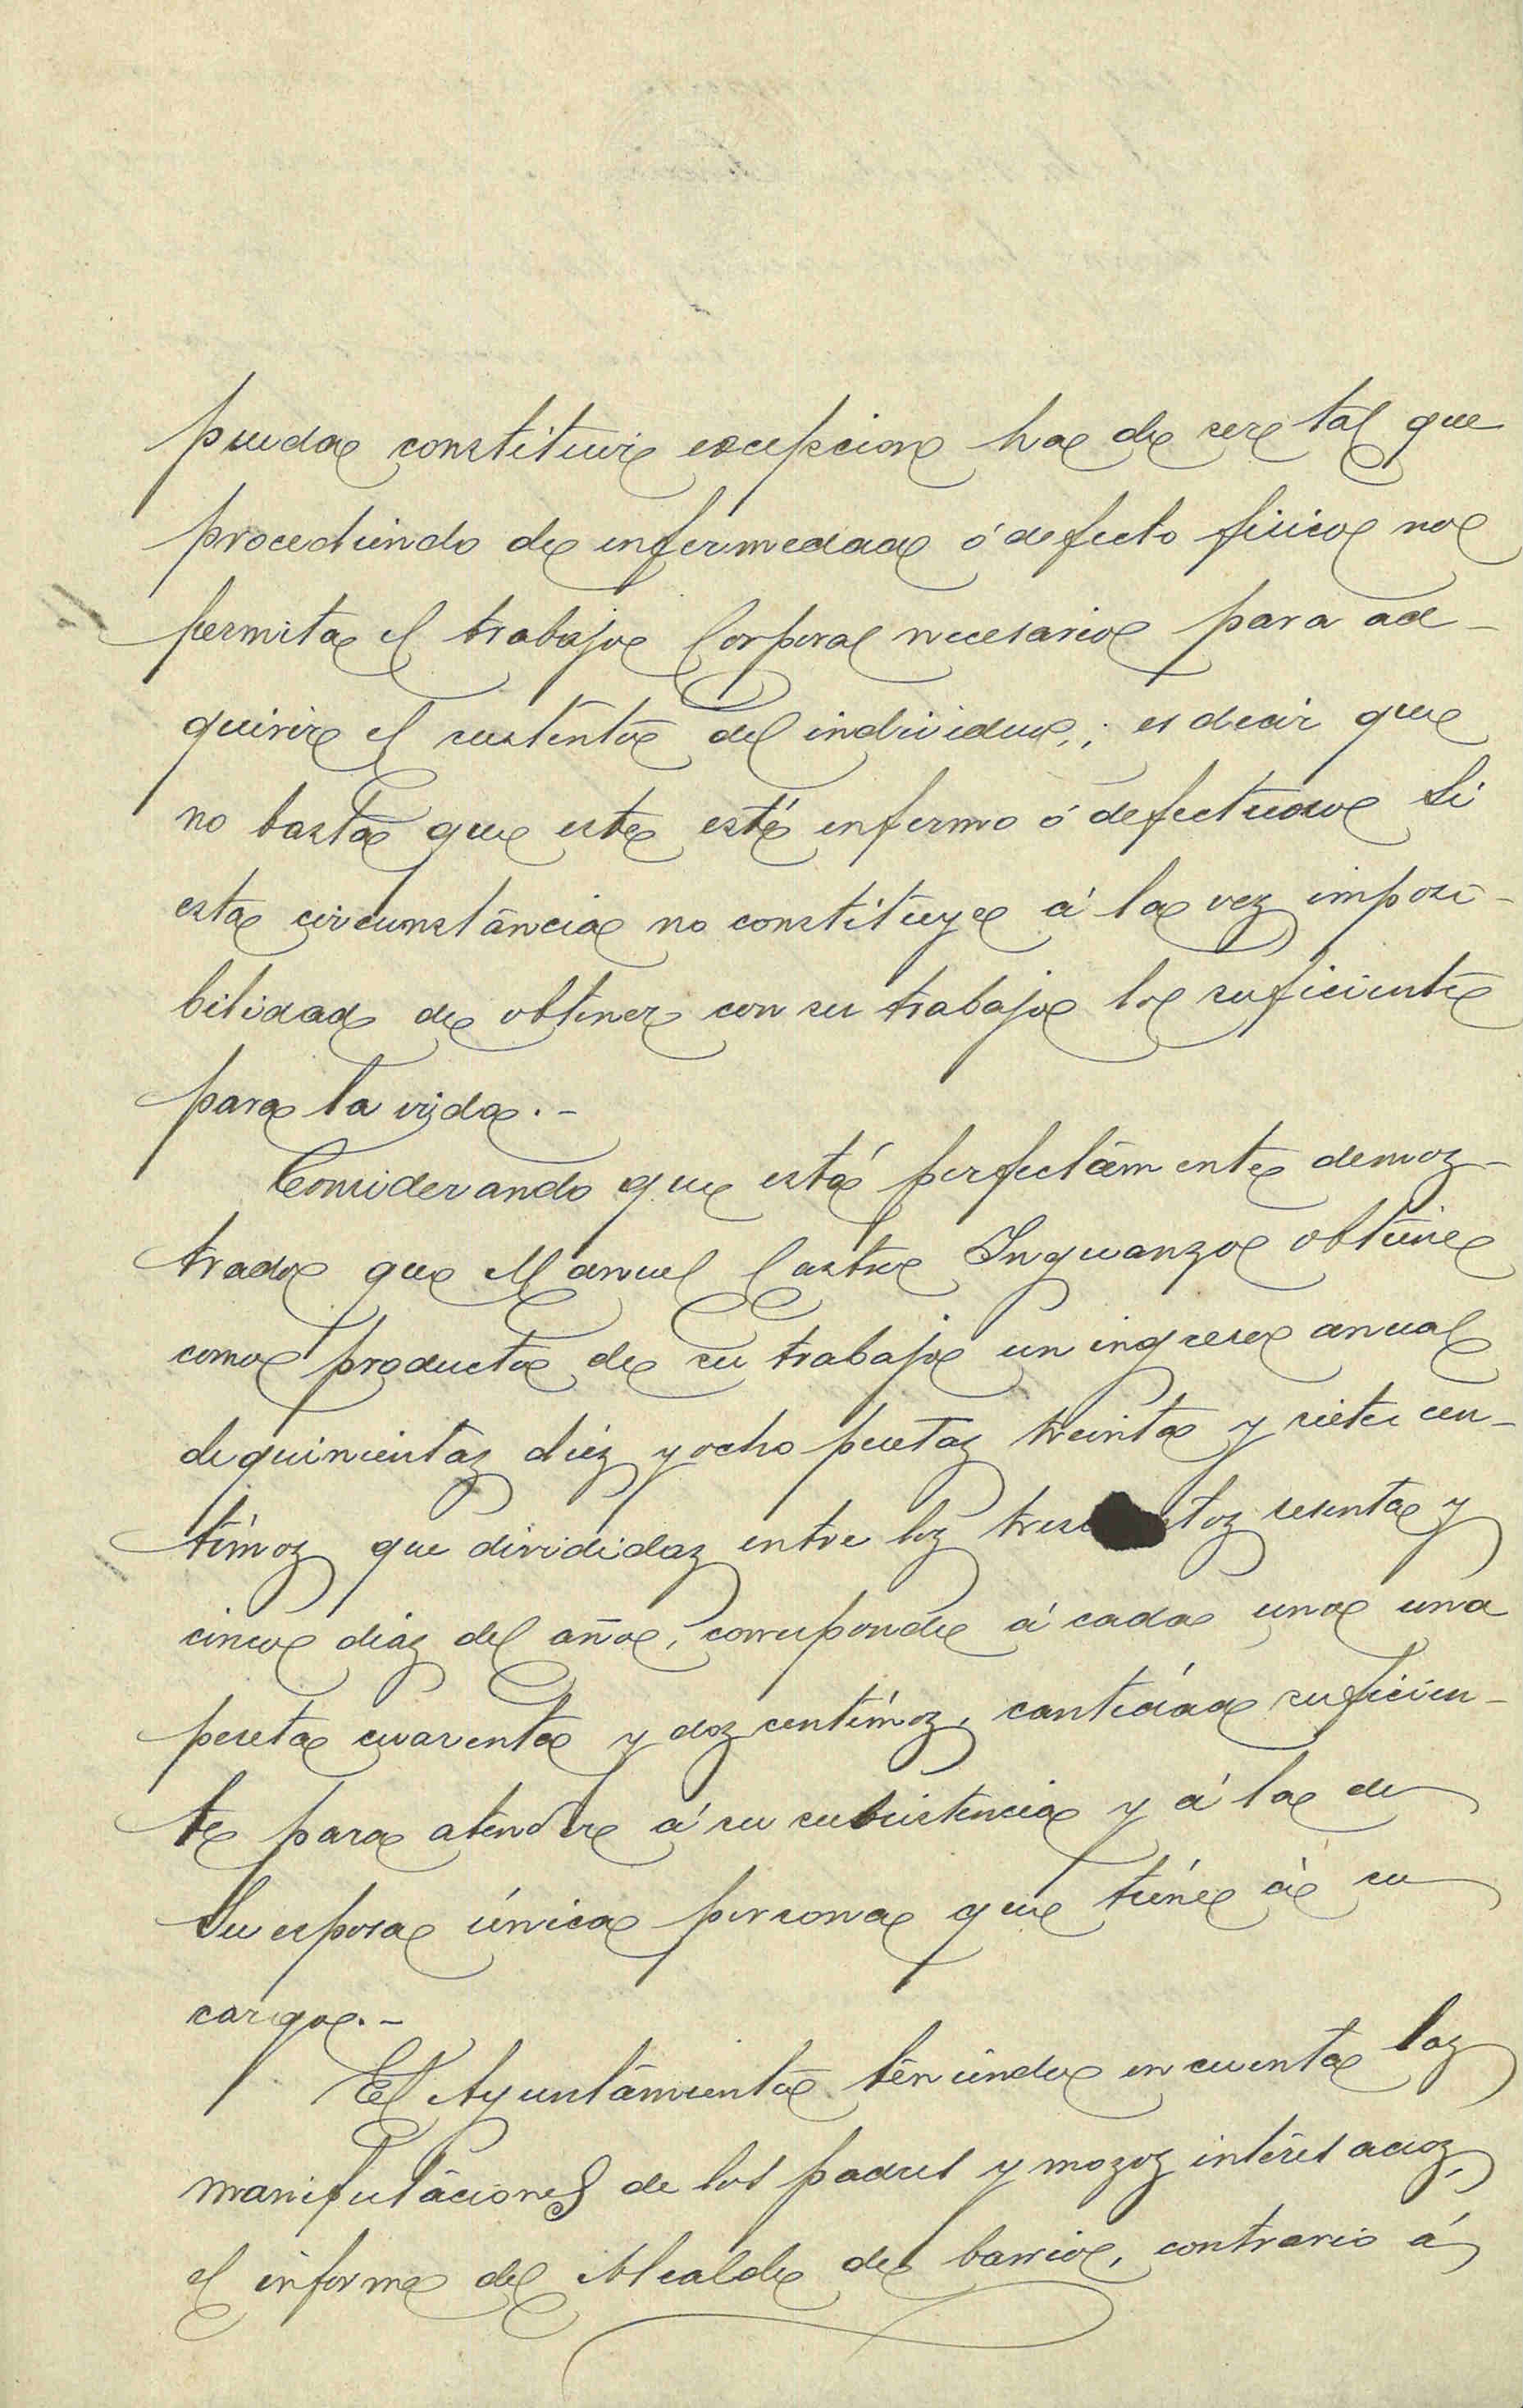 pueda constituir excepcion ha de ser tal que
procediendo de enfermedad ó defecto fisico no
permita el trabajo Corporal necesario para ad-
quirir el sustento del individuo,; es decir que
no basta que este esté enfermo ó defectuoso Si
esta circunstáncia no constituye á la vez imposi-
bilidad de obtener con su trabajo lo suficiente
para la vida.-
Considerando que está perfectamente demos-
trado que Manuel Castro Inguanzo obtiene
como producto de su trabajo un ingreso anual
de quinientas diez y ocho pesetas treinta y siete cen-
timos que divididas entre los tres tos sesenta y
cinco dias del año, corresponde á cada uno una
peseta cuarenta y dos centimos, cantidad suficien-
te para atender á su subsistencia y á la de
Su esposa única persona que tiene á su
cargo.-
El Ayuntamiento teniendo en cuenta las
manifestaciones de los padres y mozos interesados,
el informe del Alcalde de barrio, contrario á